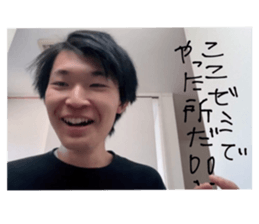 ここゼミで
やった所だ!!